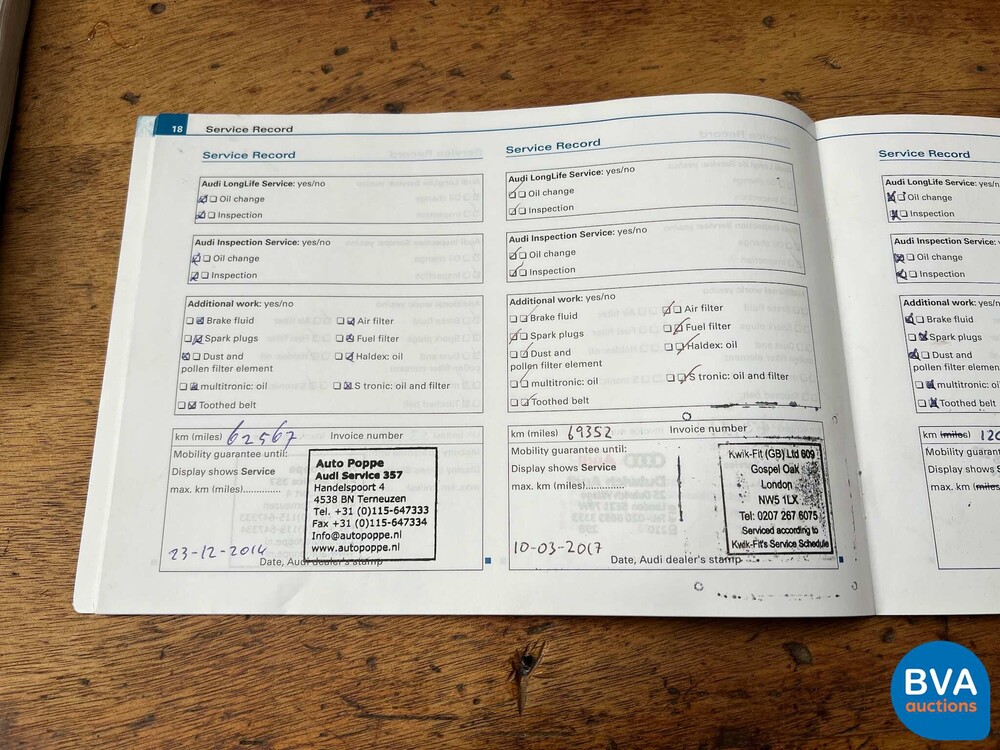 18 Service Record
Service Record
Audi LongLife Service: yes/no
Oil change
Inspection
Audi Inspection Service: yes/no
Oil change
Inspection
Additional work: yes/no
Brake fluid Air filter
Spark plugs Fuel filter
Dust and Haldex: oil
pollen filter element
multitronic: oil S tronic: oil and filter
Toothed belt
km (miles) 62567 Invoice number
Mobility guarantee until:
Display shows Service
max. km (miles)..............
Auto Poppe
Audi Service 357
Handelspoort 4
4538 BN Terneuzen
Tel. +31 (0)115-647333
Fax +31 (0)115-647334
Info@autopoppe.nl
www.autopoppe.nl
23-12-2014
Date, Audi dealer's stamp
Service Record
Audi LongLife Service: yes/no
Oil change
Inspection
Audi Inspection Service: yes/no
Oil change
Inspection
Additional work: yes/no
Brake fluid Air filter
Spark plugs Fuel filter
Dust and Haldex: oil
pollen filter element
multitronic: oil S tronic: oil and filter
Toothed belt
km (miles) 69352 Invoice number
Mobility guarantee until:
Display shows Service
max. km (miles)..............
Kwik-Fit (GB) Ltd 609
Gospel Oak
London
NW5 1LX
Tel: 0207 267 6075
Serviced according to
Kwik-Fit's Service Schedule
10-03-2017
Date, Audi dealer's stamp
Service Record
Audi LongLife Service: yes
Oil change
Inspection
Audi Inspection Service:
Oil change
Inspection
Additional work: yes/no
Brake fluid
Spark plugs
Dust and
pollen filter element
multitronic: oil
Toothed belt
km (miles) 120
Mobility guarantee
Display shows S
max. km (miles
BVA
auctions